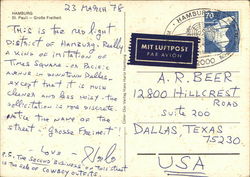 HAMBURG
St. Pauli - Große Freiheit
23 MARCH 78
THIS IS THE RED LIGHT
DISTRICT OF HAMBURG. Really
KIND OF IMITATION OF
TIMES SQUARE OR PACIFIC
AVENUE IN DOWNTOWN DALLAS,
EXCEPT THAT IT IS MUCH
CLEANER AND LESS NOISY - THE
SOLICITATION IS FOR DISCRETE.
NOTE THE NAME OF THE
STREET - "GROSSE FREIHEIT".
LOVE -
P.S. THE SECOND BUSINESS ON THIS STREET
IS THE COWBOY OUTFITS.
MIT LUFTPOST
PAR AVION
HAMBURG
70
2000
A.R. BEER
12800 HILLCREST
ROAD
SUITE 200
DALLAS, TEXAS
75230
USA